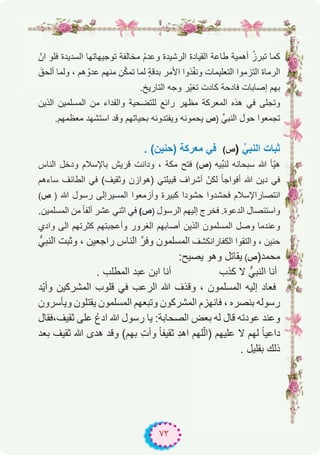 كما تبرزُ أهمية طاعة القيادة الرشيدة وعدمُ مخالفة توجيهاتها السديدة فلو انّ
الرماة التزموا التعليمات ونفّذوا الأمر بدقةٍ لما تمكّن منهم عدوّهم ، ولما ألحقَ
بهم إصابات فادحة كادت تغيّر وجه التاريخ.
وتجلى في هذه المعركة مظهر رائع للتضحية والفداء من المسلمين الذين
تجمعوا حول النبيِّ (ص) يحمونه ويفتدونه بحياتهم وقد استشهد معظمهم.
ثبات النبيّ (ص) في معركة (حنين) .
هيّأ الله سبحانه لنبّيه (ص) فتح مكة ، ودانت قريش بالإسلام ودخل الناس
في دين الله أفواجاً لكنَّ أشراف قبيلتي (هوازن وثقيف) في الطائف ساءهم
انتصارالإسلام فحشدوا حشودا كبيرة وأزمعوا المسيرإلى رسول الله ( ص)
واستئصال الدعوة. فخرج إليهم الرسول (ص) في اثني عشر ألفاً من المسلمين.
وعندما وصل المسلمون الذين أصابهم الغرور وأعجبتهم كثرتهم الى وادي
حنين ، والتقوا الكفارانكشف المسلمون وفرَّ الناس راجعين ، وثبت النبيُّ
محمد(ص) يقاتل وهو يصيح:
أنا النبيُّ لا كذب أنا ابن عبد المطلب .
فعاد إليه المسلمون ، وقذف الله الرعب في قلوب المشركين وأيّد
رسوله بنصره ، فانهزم المشركون وتبعهم المسلمون يقتلون ويأسرون
وعند عودته قال له بعض الصحابة: يا رسول الله ادعُ على ثقيف،فقال
داعياً لهم لا عليهم (الّلهم اهدِ ثقيفاً وأتِ بهم) وقد هدى الله ثقيف بعد
ذلك بقليل .
٧٢